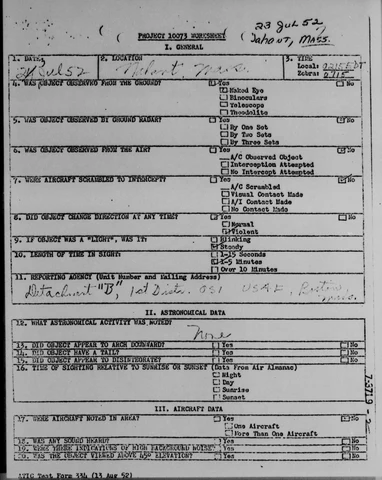 23 Jul 52,
Nahant, Mass.
PROJECT 10073 WORKSHEET
I. GENERAL
1. DATE 2. LOCATION 3. TIME
Jul 52 Nahant Mass. Local: EDT
Zebra:
4. WAS OBJECT OBSERVED FROM THE GROUND? Yes No
Naked Eye
Binoculars
Telescope
Theodolite
5. WAS OBJECT OBSERVED BY GROUND RADAR? Yes No
By One Set
By Two Sets
By Three Sets
6. WAS OBJECT OBSERVED FROM THE AIR? Yes No
A/C Observed Object
Interception Attempted
No Intercept Attempted
7. WERE AIRCRAFT SCRAMBLED TO INTERCEPT? Yes No
A/C Scrambled
Visual Contact Made
A/I Contact Made
No Contact Made
8. DID OBJECT CHANGE DIRECTION AT ANY TIME? Yes No
Normal
Violent
9. IF OBJECT WAS A "LIGHT", WAS IT: Blinking
Steady
10. LENGTH OF TIME IN SIGHT: 1-15 Seconds
Minutes
Over 10 Minutes
11. REPORTING AGENCY (Unit Number and Mailing Address)
Detachment "B", 1st Distr. OSI USAF, Boston, Mass.
II. ASTRONOMICAL DATA
12. WHAT ASTRONOMICAL ACTIVITY WAS NOTED?
None
13. DID OBJECT APPEAR TO ARCH DOWNWARD? Yes No
14. DID OBJECT HAVE A TAIL? Yes No
15. DID OBJECT APPEAR TO DISINTEGRATE? Yes No
16. TIME OF SIGHTING RELATIVE TO SUNRISE OR SUNSET (Data From Air Almanac)
Night
Day
Sunrise
Sunset
III. AIRCRAFT DATA
17. WERE AIRCRAFT NOTED IN AREA? Yes No
One Aircraft
More Than One Aircraft
18. WAS ANY SOUND HEARD? Yes No
19. WERE THERE INDICATIONS OF HIGH BACKGROUND NOISE? Yes No
20. WAS THE OBJECT VIEWED ABOVE 45° ELEVATION? Yes No
ATIC Test Form 334 (13 Aug 52)